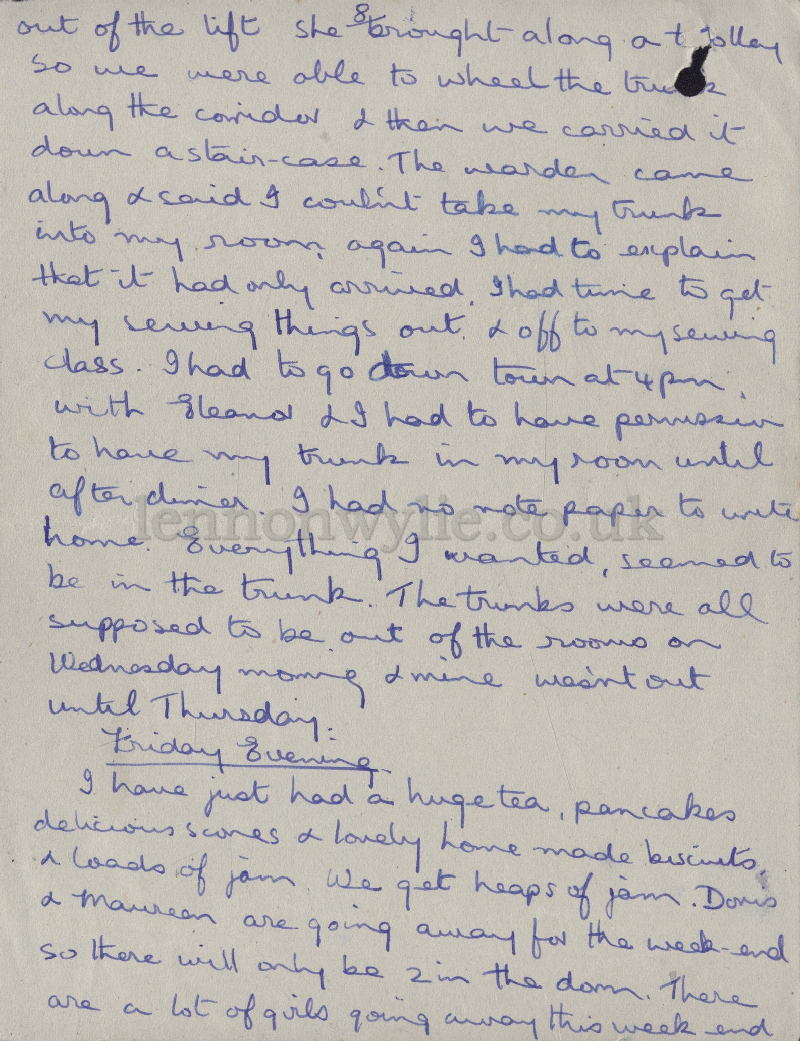 out of the lift she & brought along a trolley
so we were able to wheel the trunk
along the corridor & then we carried it
down a stair-case. The warden came
along & said I couldn't take my trunk
into my room, again I had to explain
that it had only arrived, I had time to get
my sewing things out & off to my sewing
class. I had to go down town at 4pm,
with Eleanor & I had to have permission
to have my trunk in my room until
after dinner. I had no note paper to write
lennonwylie.co.uk
home. Everything I wanted, seemed to
be in the trunk. The trunks were all
supposed to be out of the rooms on
Wednesday morning & mine wasn't out
until Thursday.
Friday Evening
I have just had a huge tea, pancakes
delicious scones & lovely home made biscuits,
& loads of jam We get heaps of jam. Doris
& Maureen are going away for the week-end
so there will only be 2 in the dorm. There
are a lot of girls going away this week end